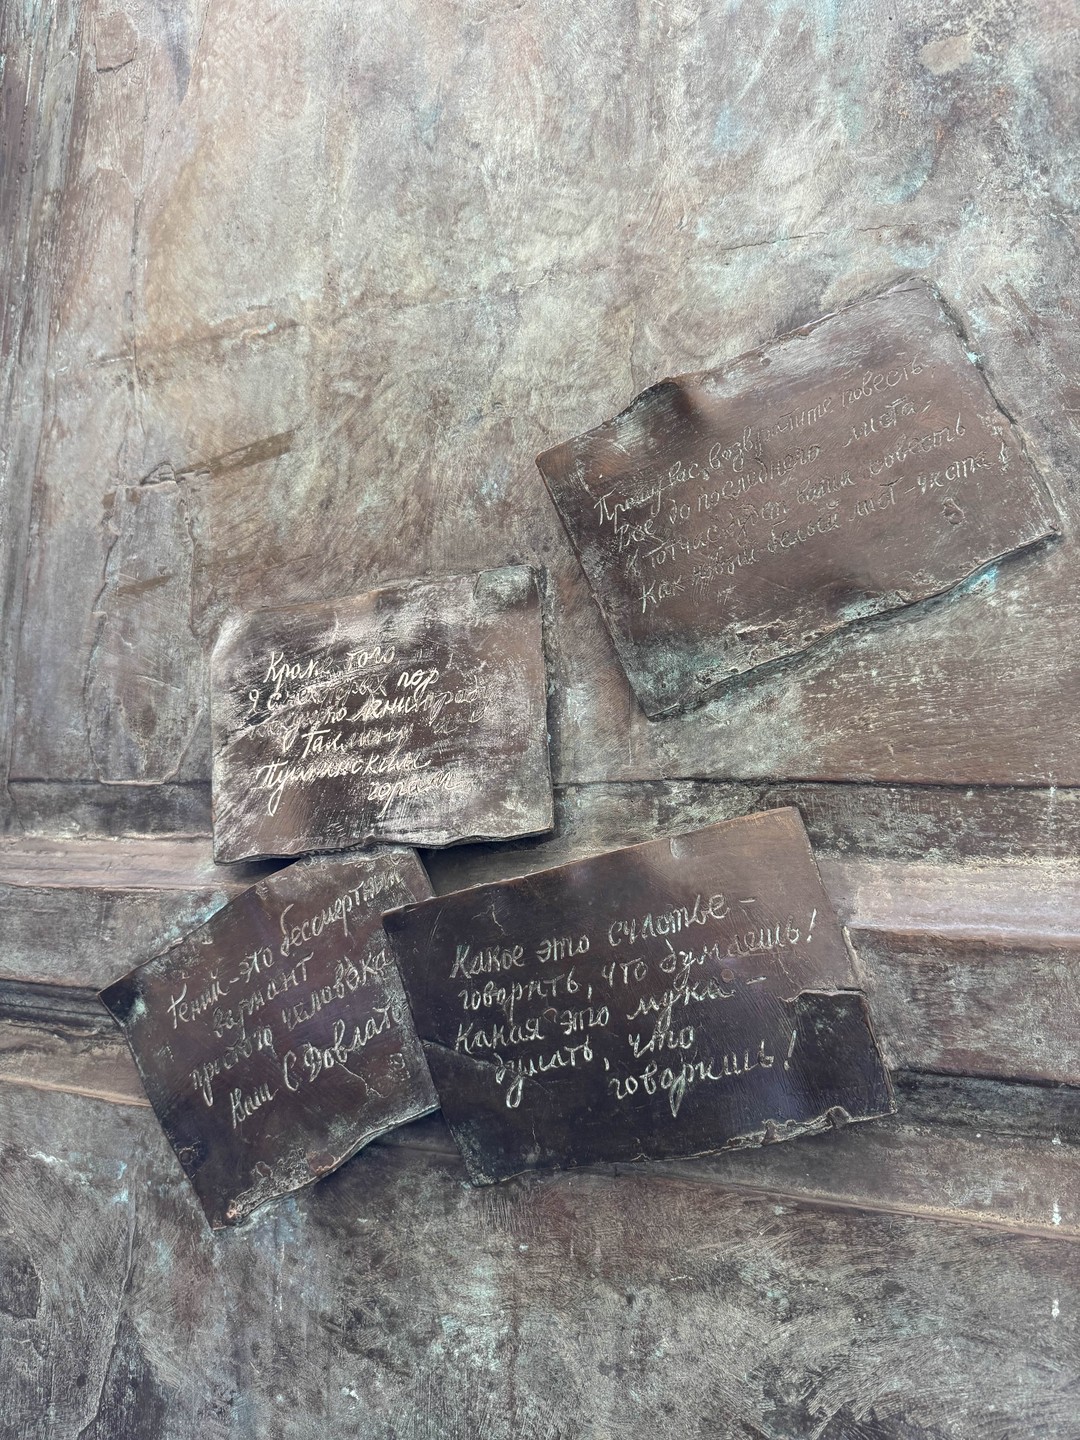 Прошу вас, возвратите повесть
Всё до последнего листа,
И тотчас будет ваша совесть
Как новый белый лист - чиста!
Кроме того
Я с некоторых пор
Ленинград
и Таллин
Пушкинские
горы
Гений - это бессмертный
вариант
простого человека
Ваш С. Довлатов
Какое это счастье -
говорить, что думаешь!
Какая это мука -
думать, что
говоришь!